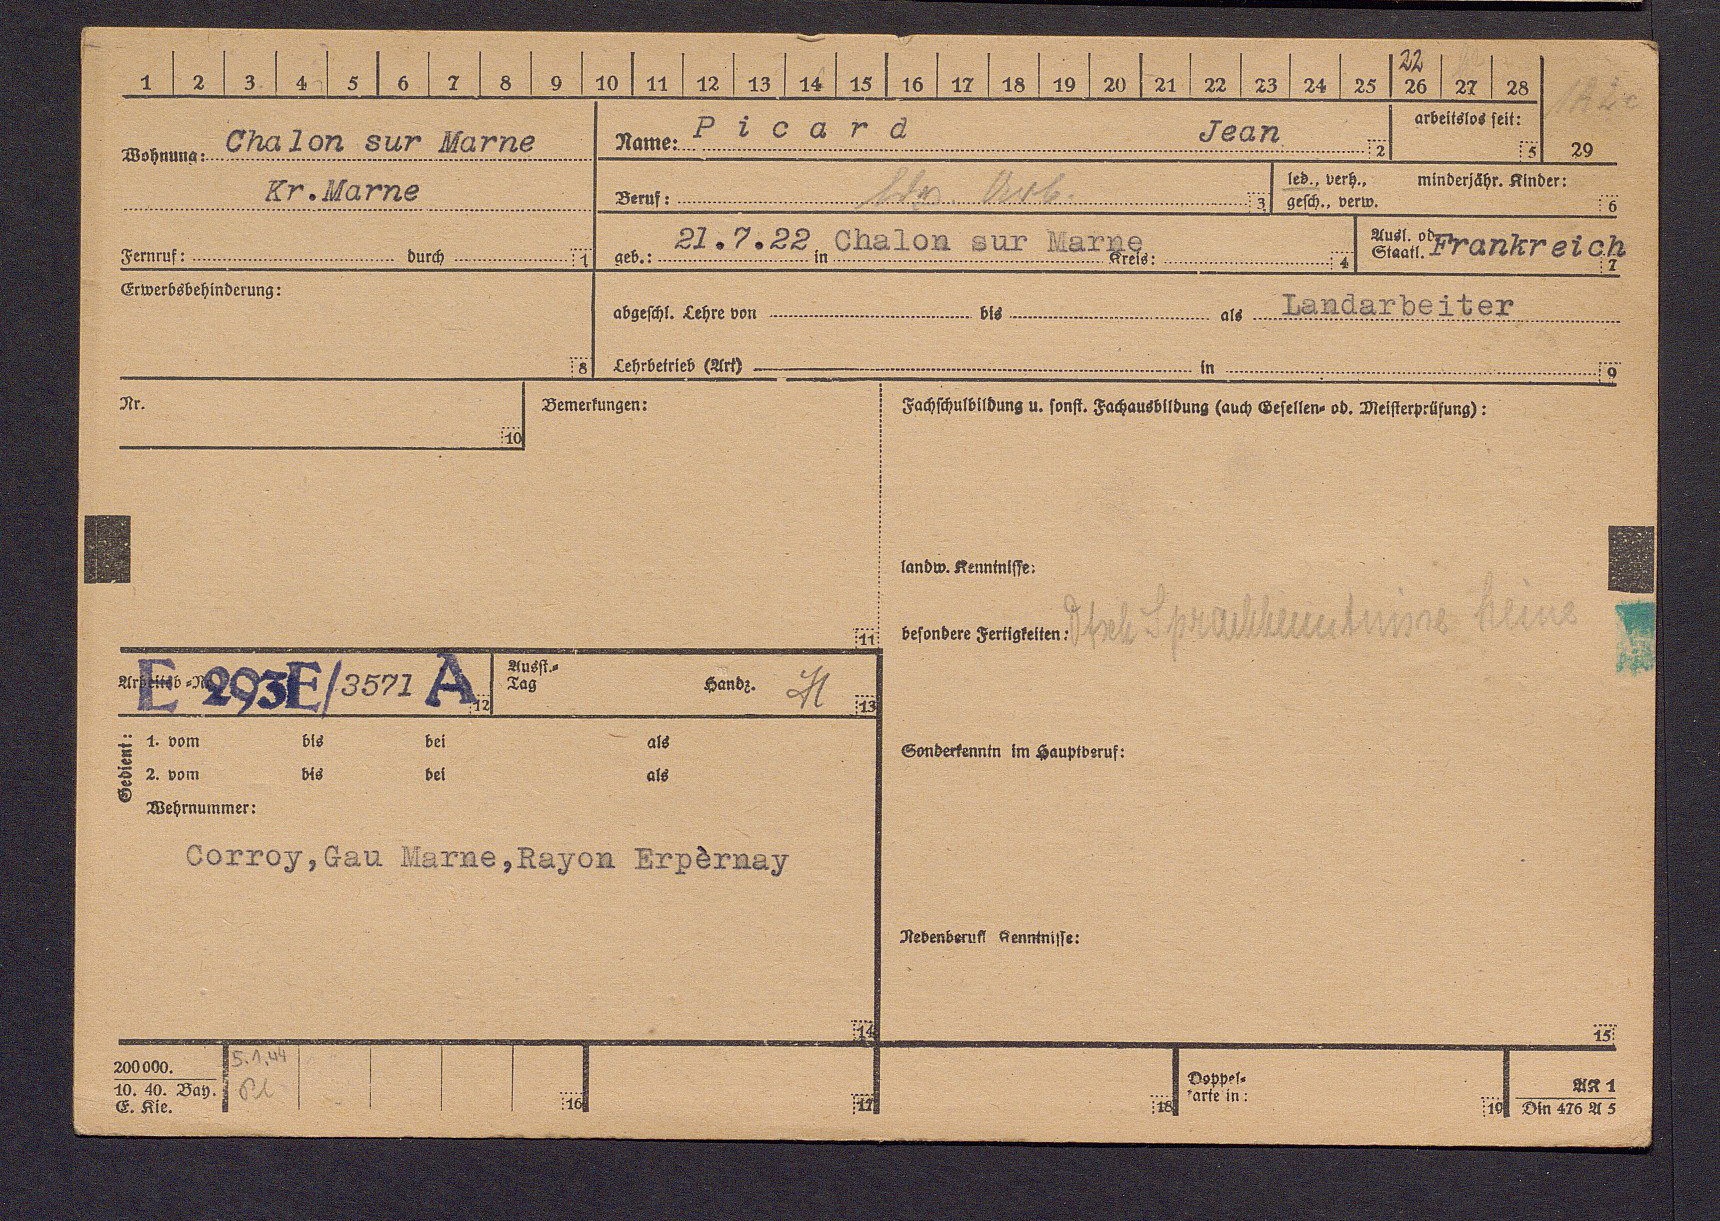 22
1 2 3 4 5 6 7 8 9 10 11 12 13 14 15 16 17 18 19 20 21 22 23 24 25 26 27 28
29
Wohnung: Chalon sur Marne
Kr.Marne
Fernruf: durch 1
Name: Picard Jean 2
arbeitslos seit: 5
Beruf: Arb. 3
led., verh., gesch., verw.
minderjähr. Kinder: 6
geb.: 21.7.22 in Chalon sur Marne Kreis: 4
Ausl. od. Staatl. Frankreich 7
Erwerbsbehinderung: 8
abgeschl. Lehre von bis als Landarbeiter
Lehrbetrieb (Art) in 9
Nr. 10
Bemerkungen: 11
Fachschulbildung u. sonst. Fachausbildung (auch Gesellen- od. Meisterprüfung):
landw. Kenntnisse:
besondere Fertigkeiten: Dtsch Sprachkenntnisse keine
Arbeitsb.-Nr. E 293E/3571 A 12
Ausst.-Tag Handz. H 13
Gedient:
1. vom bis bei als
2. vom bis bei als
Wehrnummer:
Corroy,Gau Marne,Rayon Erpèrnay
14
Sonderkenntn im Hauptberuf:
Nebenberufl Kenntnisse:
15
200000.
10. 40. Bay.
E. Kie.
5.1.44
16 17 18
Doppel-
karte in: 19
AK 1
Din 476 A 5